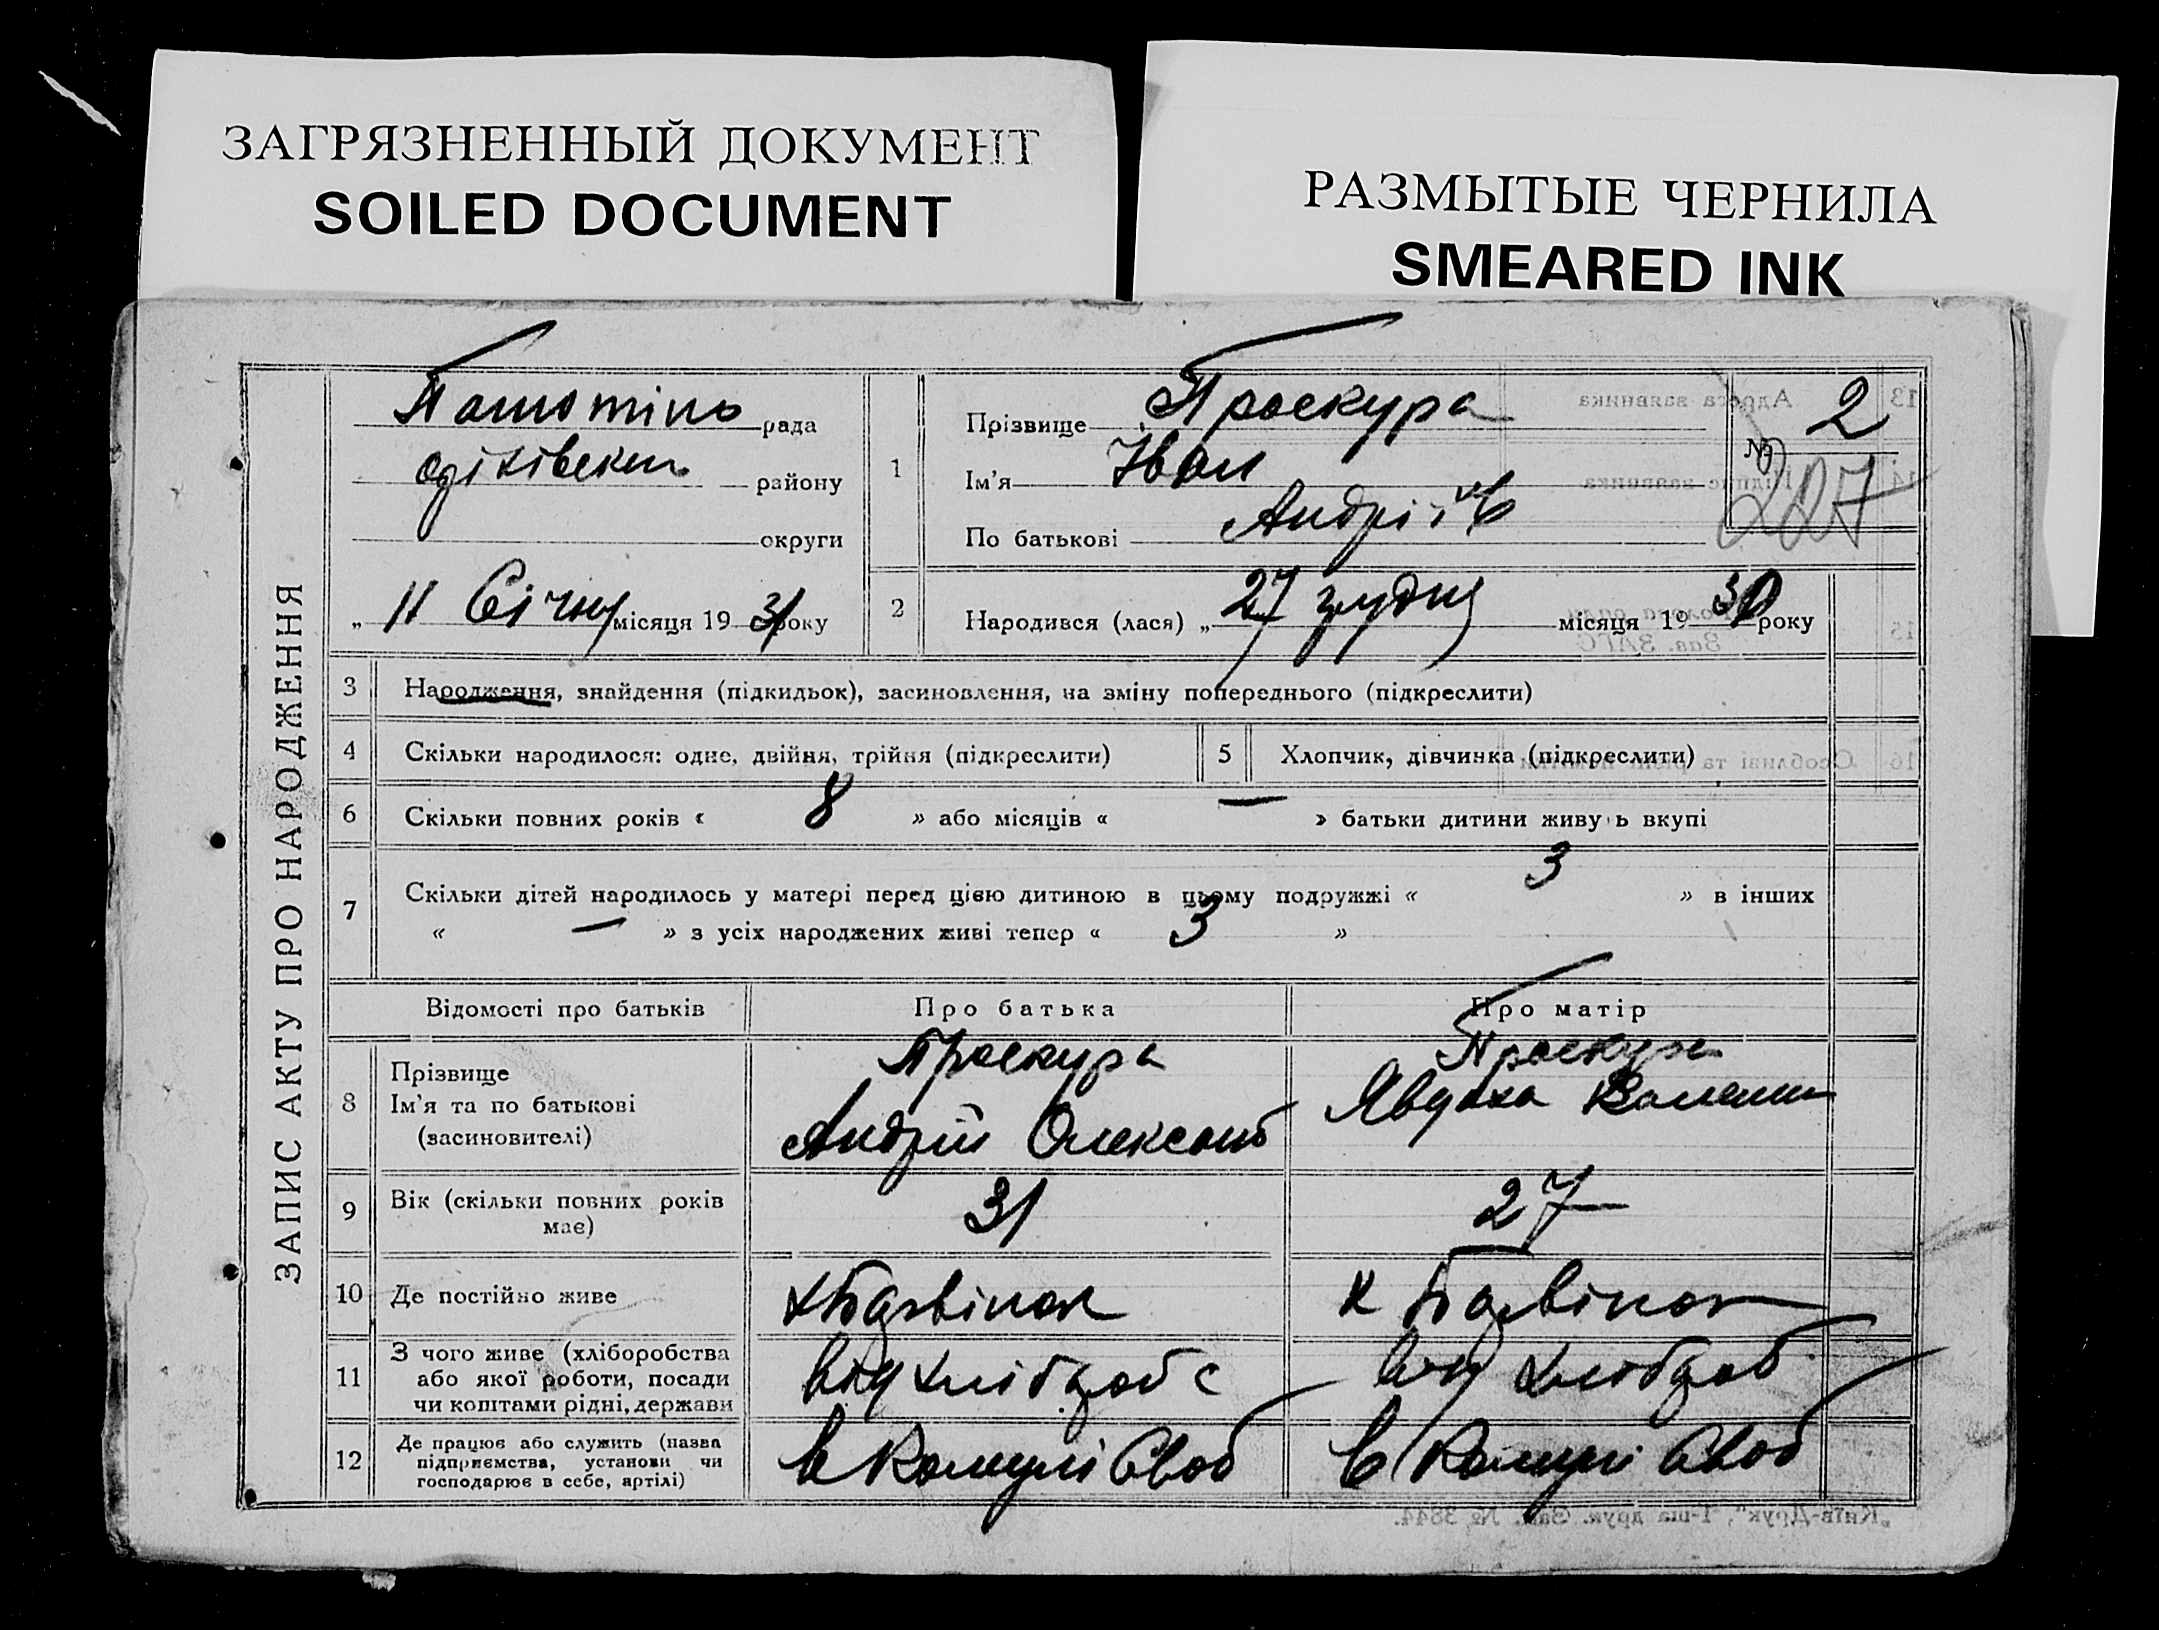 ЗАГРЯЗНЕННЫЙ ДОКУМЕНТ
SOILED DOCUMENT
РАЗМЫТЫЕ ЧЕРНИЛА
SMEARED INK
ЗАПИС АКТУ ПРО НАРОДЖЕННЯ
рада
району
округи
„ 11 Січня місяця 19 31 року
1
Прізвище Проскура
Ім'я Іван
По батькові Андрійов
№ 2
227
2 Народився (лася) „ 27 грудня місяця 19 30 року
3 Народження, знайдення (підкидьок), засиновлення, на зміну попереднього (підкреслити)
4 Скільки народилося: одне, двійня, трійня (підкреслити)
5 Хлопчик, дівчинка (підкреслити)
6 Скільки повних років « 8 » або місяців « — » батьки дитини живуть вкупі
7 Скільки дітей народилось у матері перед цією дитиною в цьому подружжі « 3 » в інших
« — » з усіх народжених живі тепер « 3 »
Відомості про батьків Про батька Про матір
8 Прізвище
Ім'я та по батькові
(засиновителі)
Проскура
Андрій Олександ
Проскура
Явдоха
9 Вік (скільки повних років
має)
31 27
10 Де постійно живе
11 З чого живе (хліборобства
або якої роботи, посади
чи коштами рідні, держави
від хлібороб с
від хлібороб
12 Де працює або служить (назва
підприємства, установи чи
господарює в себе, артілі)
в Комуні Своб
в Комуні Своб
„Київ-Друк", 1-ша друк. Зам. № 3844.